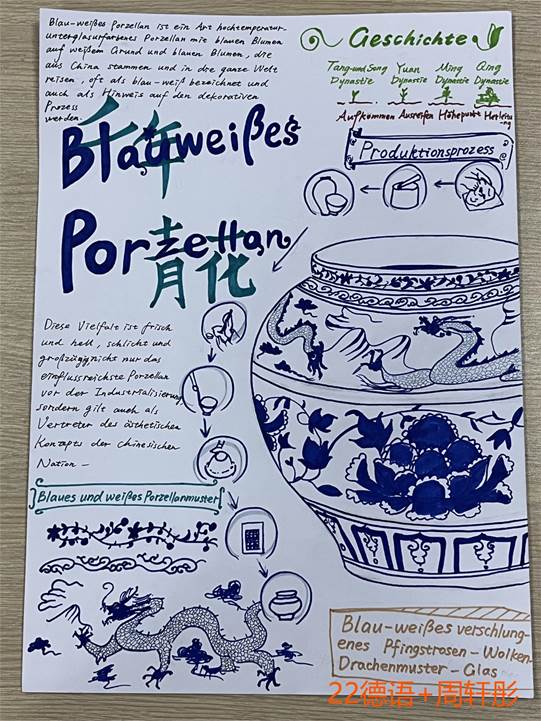 Blau-weißes Porzellan ist ein Art hochtemperatur-
unterglasurfarbenes Porzellan mit blauen Blumen
auf weißem Grund und blauen Blumen, die
aus China stammen und in die ganze Welt
reisen, oft als blau-weiß bezeichnet und
auch als Hinweis auf den dekorativen
Prozess
werden.
Geschichte
Tang-und Song Yuan Ming Qing
Dynastie Dynastie Dynastie Dynastie
Aufkommen Ausreifen Höhepunkt
Produktionsprozess
千年
Blauweißes
Porzellan
青花
Diese Vielfalt ist frisch
und hell, schlicht und
großzügig, nicht nur das
einflussreichste Porzellan
vor der Industrialisierung
sondern gilt auch als
Vertreter des ästhetischen
Konzepts der chinesischen
Nation —
Blaues und weißes Porzellanmuster
Blau-weißes verschlung-
enes Pfingstrosen-Wolken-
Drachenmuster-Glas
22德语+周轩彤